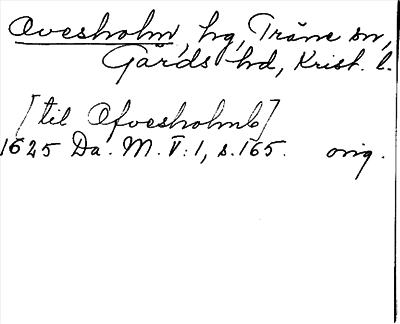 Ovesholm, hg, Träne sn,
Gärds hd, Krist. l.
[til Ofvesholmb]
1625 Da. M. V:1, s.165. orig.